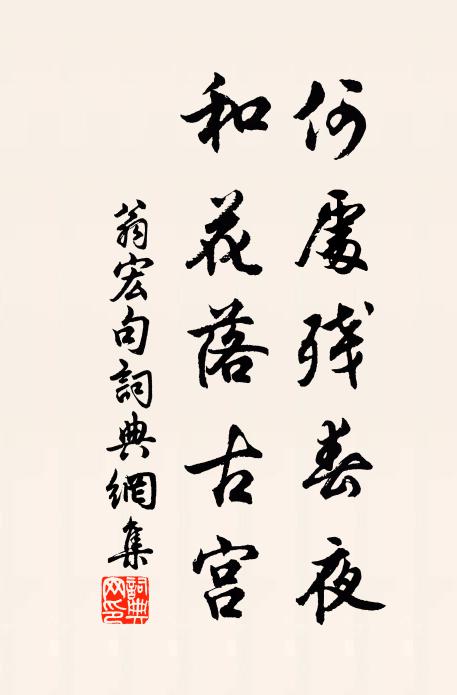 何處残春夜
和花落古宫
翁宏句詞典網集
詞典网印